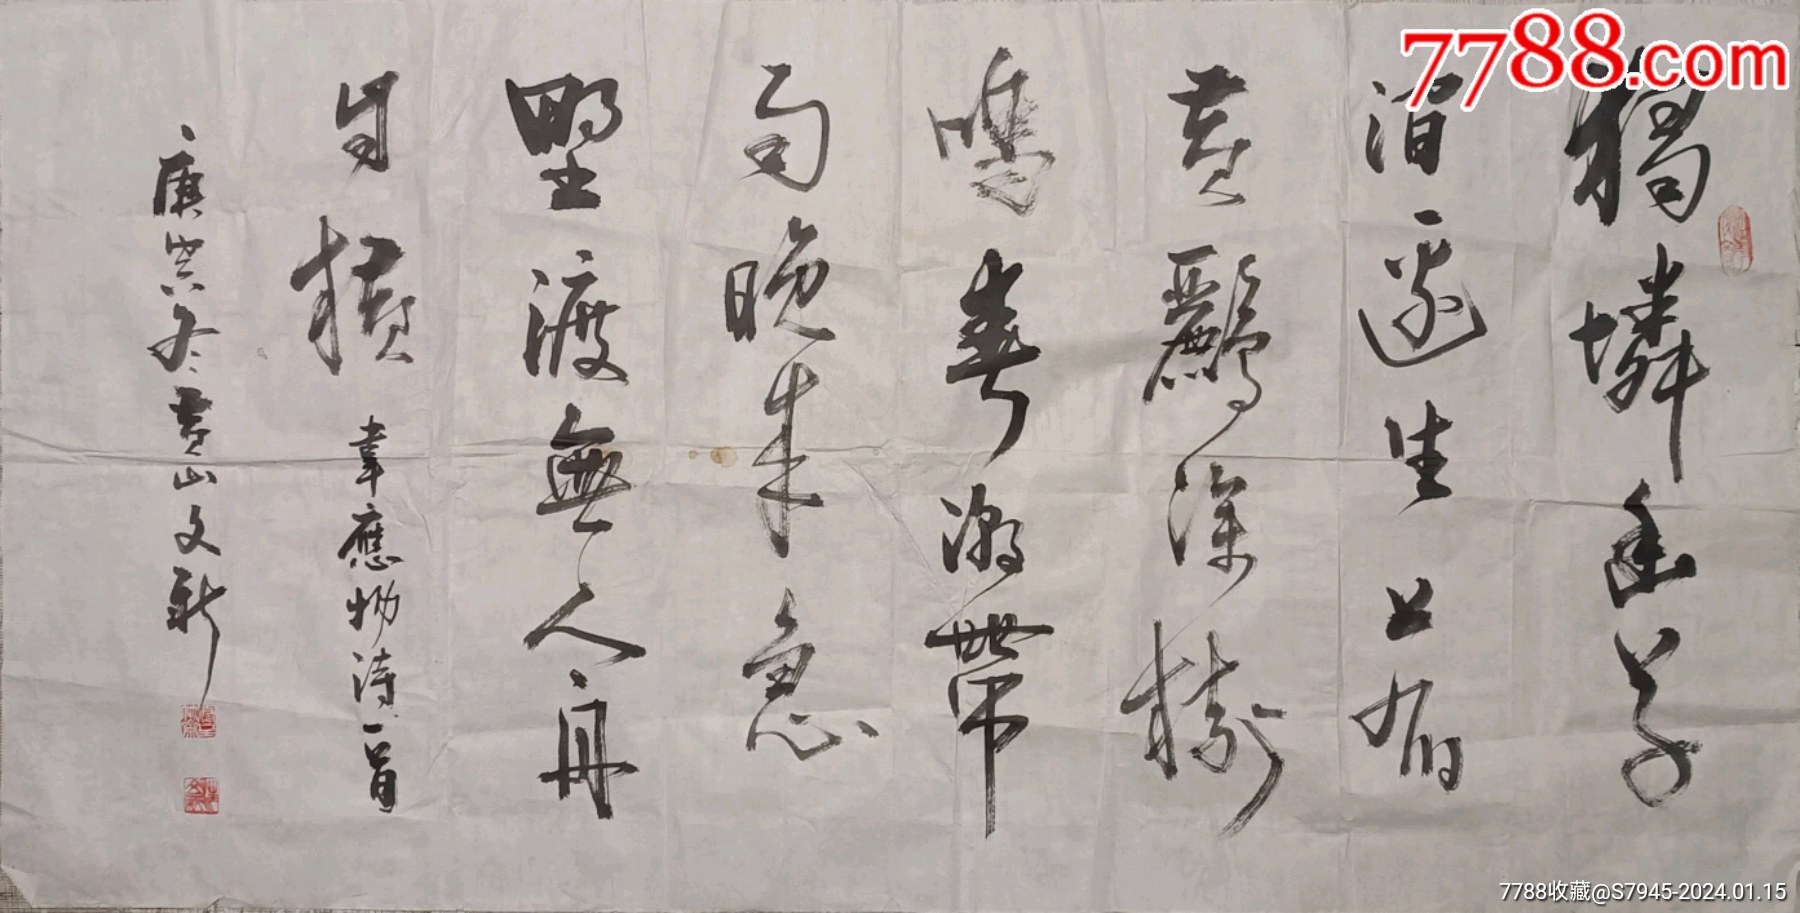 獨憐幽草
澗邊生上有
黃鸝深樹
鳴春潮帶
雨晚來急
野渡無人舟
自橫 韋應物詩一首
庚寅冬黃山文新
7788.com
7788收藏@S7945-2024.01.15